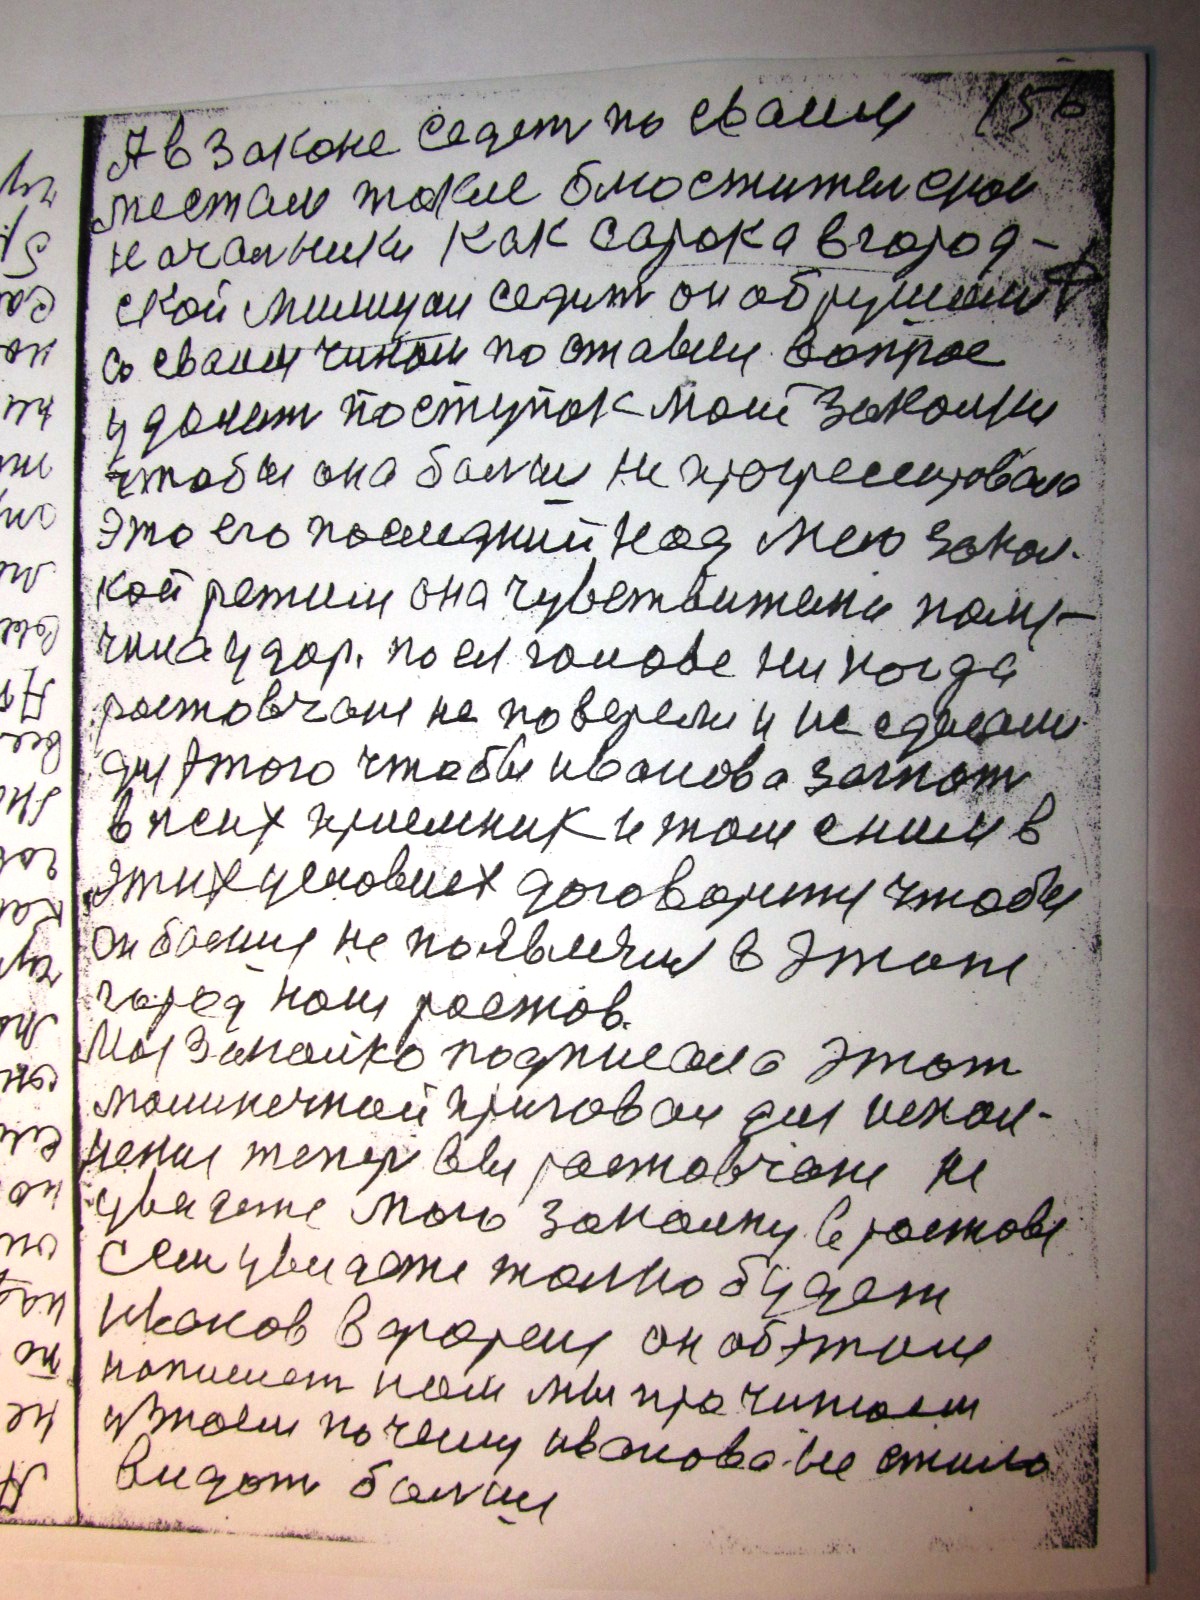 156
А в законе седет по сваим
местам такие блюстители снои
началники как сарока в город-
ской милиции седит он обрушилса
со сваим чином поставили вопрос
удочит поступок мои законки
чтобы она болши не прогрессировала
Это его последний над маю закол-
кой режим она чувствително полу-
чила удар. по ея голове никогда
ростовчане не поверели и не сделали
для этого чтобы иванова загнат
в псих приемник и там с ним в
этих условиях договорится чтобы
он болши не появлялся в этот
город наш ростов.
Моя заколка подписала этот
приговор для испол-
нения тепер вы ростовчане не
увидете маю заколку в ростове
если увидете толко будет
иванов в форме он об этом
напишет нам мы прачитаем
узнаем почему иванова не стало
видат болши